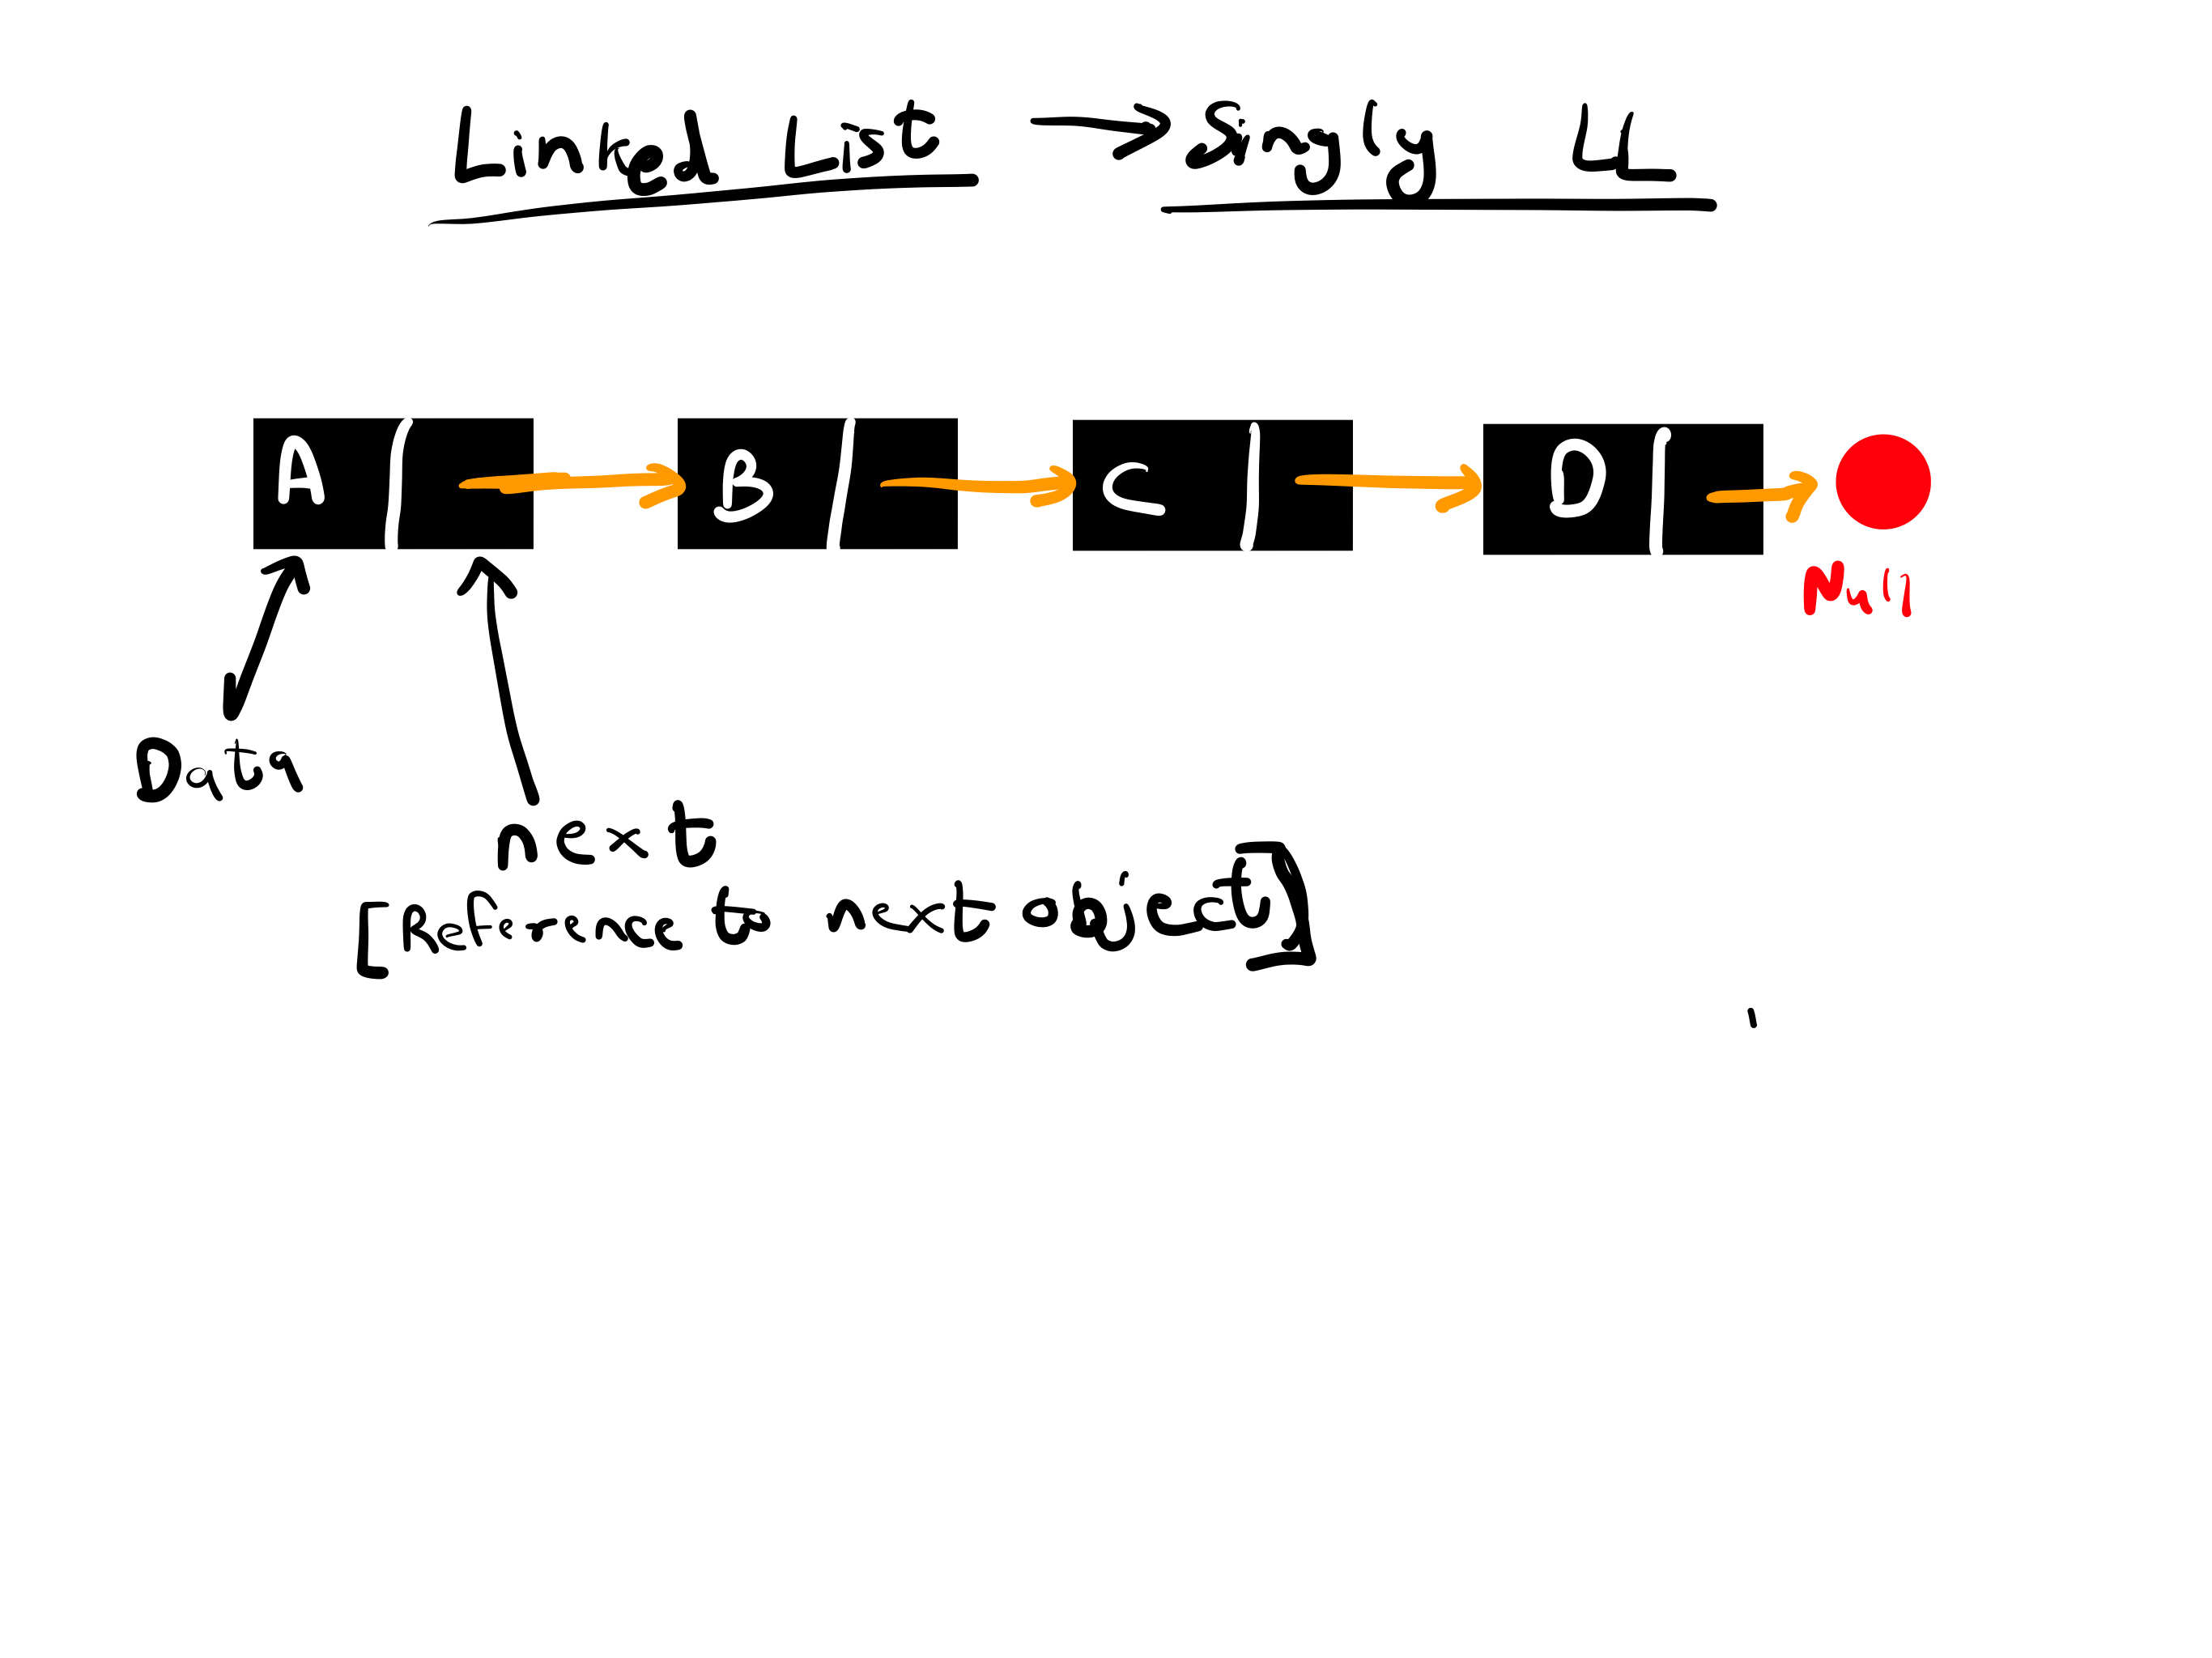 Linked List → Singly LL
A B C D
Null
Data
next
[Reference to next object]